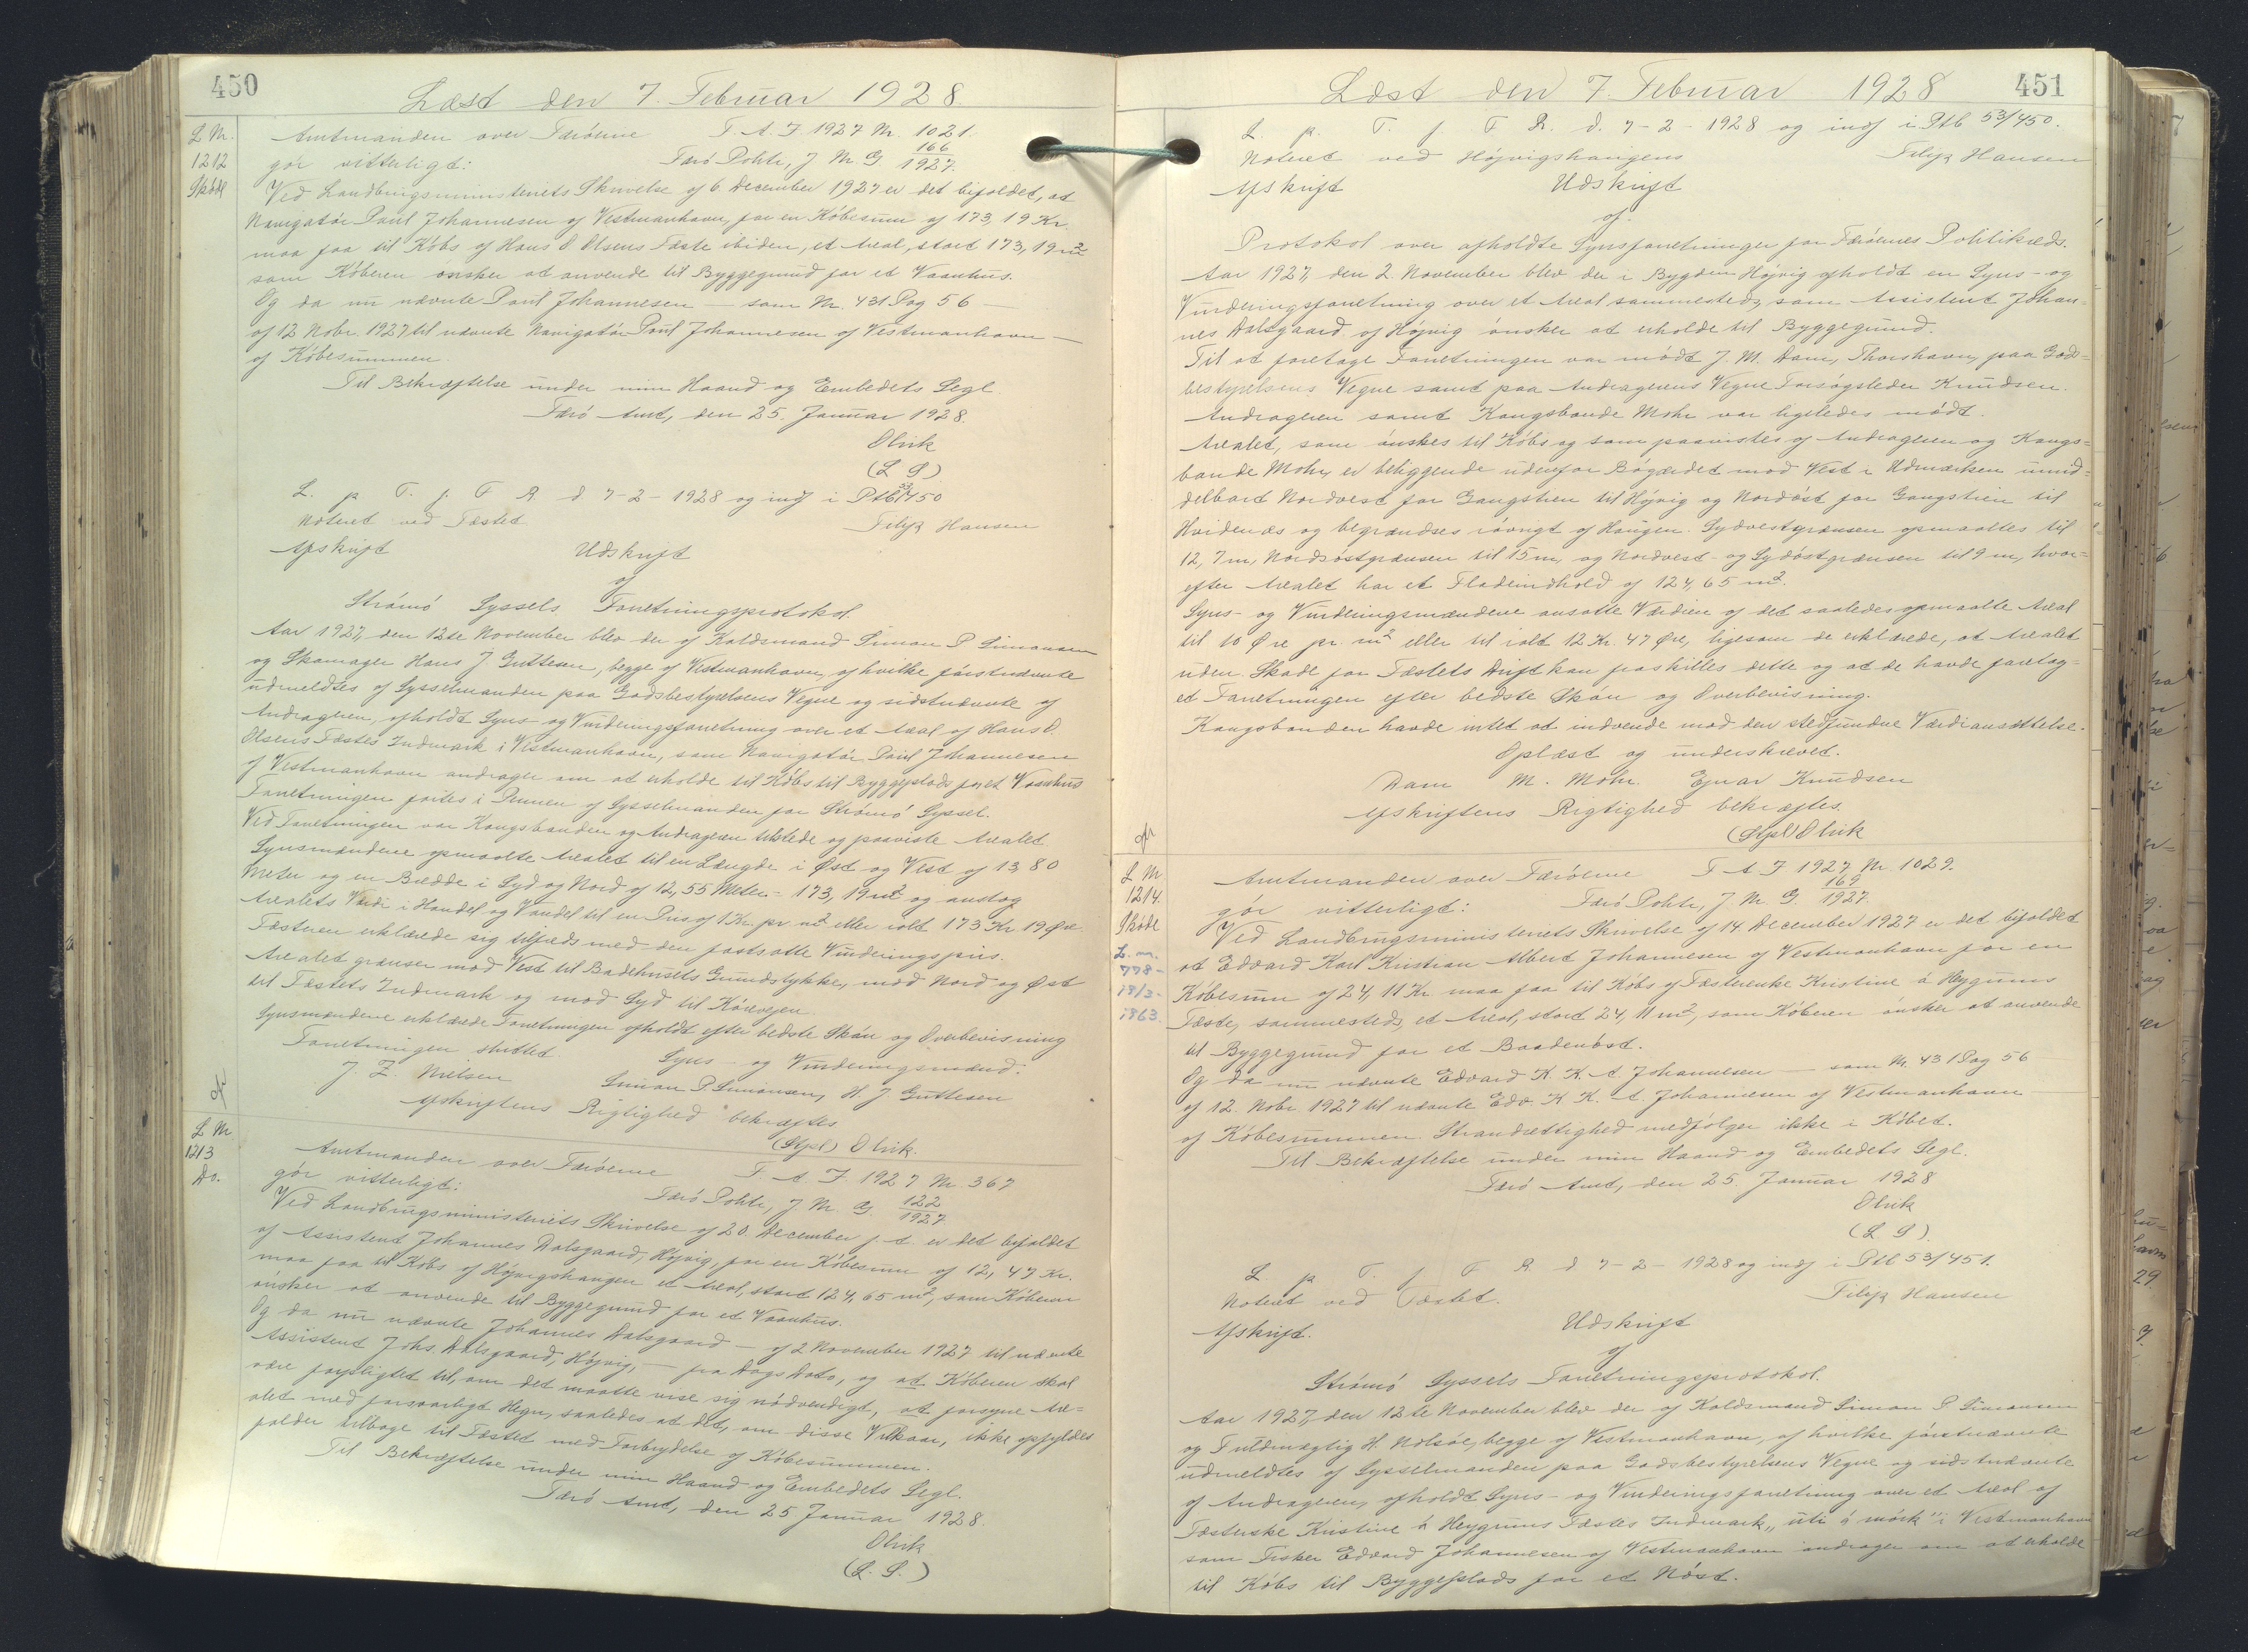 450
Læst den 7. Februar 1928
L M.
1212
Skøde
Amtmanden over Færøerne F. A. J. 1927 Nr. 1021.
gør vitterligt: Færö Politi, J. Nr. G 166/1927.
Ved Landbrugsministeriets Skrivelse af 6. December 1927 er det bifaldet, at
Navigatör Poul Johannesen af Vestmanhavn, for en Köbesum af 173,19 Kr
maa faa til Köbs af Hans O Olsens Fæste ibiden, et Areal, stort 173,19 m2
som Köberen önsker at anvende til Byggegrund for et Vaanhus.
Og da nu nævnte Poul Johannesen — som Nr. 431 Pag 56 —
af 12 Nobr. 1927 til nævnte Navigatör Poul Johannesen af Vestmanhavn —
af Köbesummen.
Til Bekræftelse under min Haand og Embedets Segl
Færö Amt, den 25 Januar 1928.
Olrik
(L S)
L. p. T. f. F R. d 7-2-1928 og indf i Ptb 53/450
Noteret ved Fæstet. Filip Hansen
Afskrift Udskrift
af
Strömö Syssels Forretningsprotokol.
Aar 1927, den 12te November blev der af Koldsmand Simon P Simonsen
og Skomager Hans J Guttesen, begge af Vestmanhavn, af hvilke förstnævnte
udmeldtes af Sysselmanden paa Godsbestyrelsens Vegne og sidstnævnte af
Andrageren, afholdt Syns- og Vurderingsforretning over et Areal af Hans O.
Olsens Fæstes Indmark i Vestmanhavn, som Navigatör Poul Johannesen
af Vestmanhavn andrager om at erholde til Köbs til Byggeplads for et Vaanhus
Forretningen förtes i Pennen af Sysselmanden for Strömö Syssel.
Ved Forretningen var Kongsbonden og Andrageren tilstede og paaviste Arealet
Synsmændene opmaalte Arealet til en Længde i Øst og Vest af 13 80
Meter og en Bredde i Syd og Nord af 12,55 Meter = 173,19 m2 og antog
Arealets Værdi i Handel og Vandel til en Pris af 1 Kr. pr m2 eller ialt 173 Kr 19 Øre.
Fæsteren erklærede sig tilfreds med den fastsatte Vurderingspris.
Arealet grænser mod Vest til Badehusets Grundstykke, mod Nord og Øst
til Fæstets Indmark og mod Syd til Körevejen.
Synsmændene erklærede Forretningen afholdt efter bedste Skön og Overbevisning
Forretningen sluttet. Syns- og Vurderingsmænd:
J. Z. Nielsen Simon P. Simonsen, H. J. Guttesen
Afskriftens Rigtighed bekræftes
(Stpl) Olrik.
L M
1213
Do.
Amtmanden over Færöerne F. A. J. 1927 Nr 367
gör vitterligt: Færö Politi, J Nr. G. 122/1927
Ved Landbrugsministeriets Skrivelse af 20. December f. A. er det bifaldet
af Assistent Johannes Dalsgaard, Höjvig, for en Köbesum af 12,47 Kr.
maa faa til Köbs af Höjvigshaugen et Areal, stort 124,65 m2, som Köberen
önsker at anvende til Byggegrund for et Vaanhus.
Og da nu nævnte Johannes Dalsgaard — af 2 November 1927 til nævnte
Assistent Johs. Dalsgaard, Höjvig, — fra Dags Dato, og at Köberen skal
være forpligtet til, om det maatte vise sig nödvendigt, at forsyne Are-
alet med forsvarligt Hegn, saaledes at det, om disse Vilkaar, ikke opfyldes
falder tilbage til Fæstet med Forbrydelse af Köbesummen.
Til Bekræftelse under min Haand og Embedets Segl.
Færö Amt, den 25 Januar 1928.
Olrik
(L. S.)
451
Læst den 7. Februar 1928
L. p. T. f. F R. d. 7-2-1928 og indf i Ptb 53/450.
Noteret ved Höjvigshaugens Filip Hansen
Afskrift Udskrift
af
Protokol over afholdte Synsforretninger for Færöernes Politikreds.
Aar 1927, den 2. November blev der i Bygden Höjvig afholdt en Syns- og
Vurderingsforretning over et Areal sammesteds, som Assistent Johan-
nes Dalsgaard af Höjvig önsker at erholde til Byggegrund.
Til at foretage Forretningen var mödt J. M. Dam, Thorshavn, paa Gods-
bestyrelsens Vegne samt paa Andragerens Vegne Forsögsleder Knudsen.
Andrageren samt Kongsbonde Mohr var ligeledes mödt.
Arealet, som önskes til Köbs og som paavistes af Andrageren og Kongs-
bonde Mohr, er beliggende udenfor Bögærdet mod Vest i Udmarken umid-
delbart Nordvest for Gangstien til Höjvig og Nordöst for Gangstien til
Hvidenæs og begrændses iövrigt af Haugen. Sydvestgrænsen opmaaltes til
12,7 m, Nordöstgrænsen til 15 m, og Nordvest- og Sydöstgrænsen til 9 m, hvor-
efter Arealet har et Fladeindhold af 124,65 m2.
Syns- og Vurderingsmændene ansatte Værdien af det saaledes opmaalte Areal
til 10 Øre pr m2 eller til ialt 12 Kr. 47 Øre, ligesom de erklærede, at Arealet
uden Skade for Fæstets Drift kan fraskilles dette og at de havde foretag-
et Forretningen efter bedste Skön og Overbevisning.
Kongsbonden havde intet at indvende mod den stedfundne Værdiansættelse.
Oplæst og underskrevet.
Dam M. Mohr Ejnar Knudsen
Afskriftens Rigtighed bekræftes.
(Stpl) Olrik
L M
1214.
Skøde
L. nr.
778-
18/3-
1863.
Amtmanden over Færöerne F A J 1927 Nr. 1029.
gör vitterligt: Færö Politi, J Nr G. 169/1927.
Ved Landbrugsministeriets Skrivelse af 14 December 1927 er det bifaldet
at Edvard Karl Kristian Albert Johannesen af Vestmanhavn for en
Köbesum af 24,11 Kr maa faa til Köbs af Fæsterenke Kristine á Heygums
Fæste, sammesteds, et Areal, stort 24,11 m2, som Köberen önsker at anvende
til Byggegrund for et Baadenöst.
Og da nu nævnte Edvard K. K. A. Johannesen — som Nr. 431 Pag 56
af 12. Nobr 1927 til nævnte Edv. K. K. A. Johannesen af Vestmanhavn
af Köbesummen. Strandrettighed medfölger ikke i Köbet.
Til Bekræftelse under min Haand og Embedets Segl.
Færö Amt, den 25. Januar 1928
Olrik
(L S)
L p T. f F R. d 7-2-1928 og indf i Ptb 53/451.
Noteret ved Fæstet. Filip Hansen
Afskrift. Udskrift
af
Strömö Syssels Forretningsprotokol.
Aar 1927, den 12te November blev der af Koldsmand Simon P Simonsen
og Fuldmægtig H. Nolsöe, begge af Vestmanhavn, af hvilke förstnævnte
udmeldtes af Sysselmanden paa Godsbestyrelsens Vegne og sidstnævnte
af Andrageren, afholdt Syns- og Vurderingsforretning over et Areal af
Fæsterske Kristine á Heygums Fæstes Indmark „uti á mörk" i Vestmanhavn
som Fisker Edvard Johannesen af Vestmanhavn andrager om at erholde
til Köbs til Byggeplads for et Nöst.